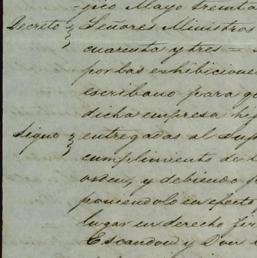 gico Mayo treinta
Decreto Señores Ministros
cuarenta y tres =
por las exhibiciones
escribano para q
dicha empresa he
Sigue entregadas al Sup
cumplimiento de
orden, y debiendo
poniendolo en efecto
lugar en derecho fir
Escandon y Don